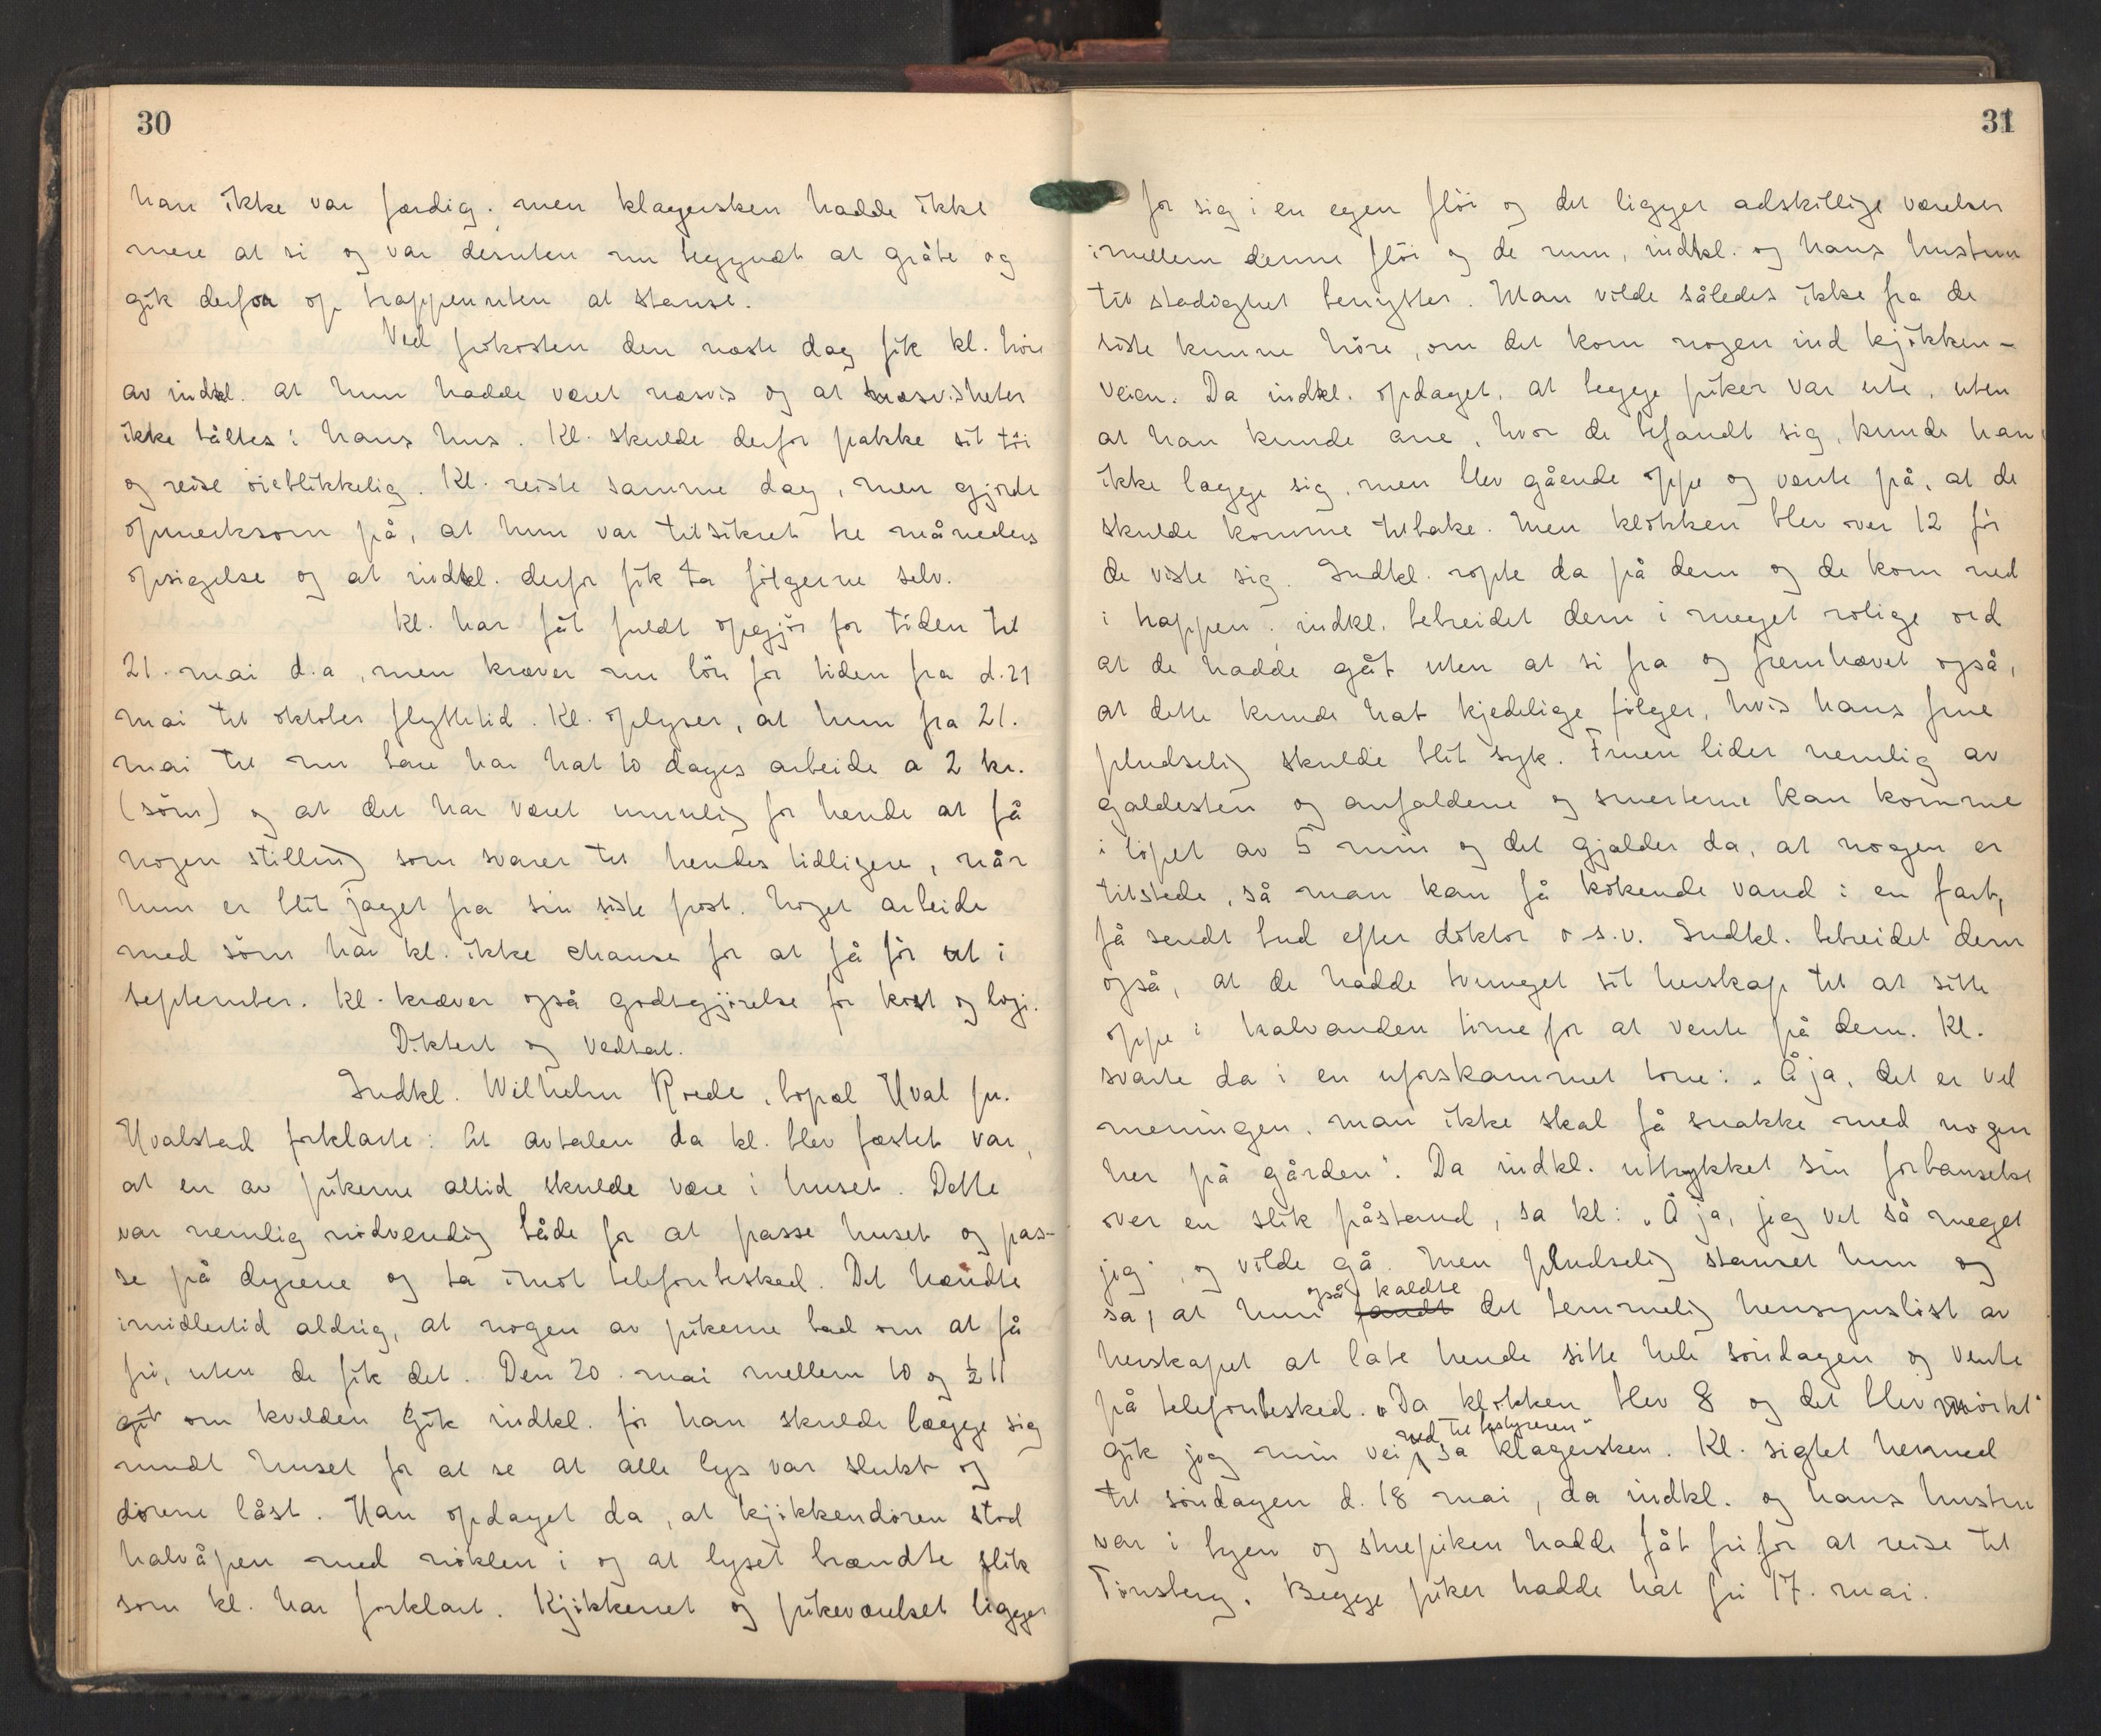 30
han ikke var færdig. men klagersken hadde ikke
mere at si og var desuten nu begyndt at gråte og
gik derfor op trappen uten at stanse.
Ved frokosten den næste dag fik kl. höre
av indkl. at hun hadde været næsvis og at næsvisheter
ikke tåltes i hans hus. Kl. skulde derfor pakke sit töi
og reise öieblikkelig. Kl. reiste samme dag, men gjorde
opmerksom på, at hun var tilsikret tre måneders
opsigelse og at indkl. derfor fik ta fölgerne selv.
Kl. har fåt fuldt opgjör for tiden til
21. mai d.a, men kræver nu lön for tiden fra d. 21
mai til oktober flyttetid. Kl. oplyser, at hun fra 21.
mai til nu bare har hat 10 dages arbeide a 2 kr.
(söm) og at det har været umulig for hende at få
nogen stilling som svarer til hendes tidligere, når
hun er blit jaget fra sin siste post. Noget arbeide
med söm har kl. ikke chanse for at få för ut i
september. Kl. kræver også godtgjörelse for kost og logi.
Diktert og vedtat.
Indkl. Wilhelm Roede, bopæl Hval pr.
Hvalstad forklarte: At avtalen da kl. blev fæstet var,
at en av pikerne altid skulde være i huset. Dette
var nemlig nödvendig både for at passe huset og pas-
se på dyrene og ta imot telefonbesked. Det hændte
imidlertid aldrig, at nogen av pikerne bad om at få
fri, uten de fik det. Den 20. mai mellem 10 og ½ 11
om kvelden gik indkl. för han skulde lægge sig
rundt huset for at se at alle lys var slukt og
dörene låst. Han opdaget da, at kjökkendören stod
halvåpen med nöklen i og at lyset brændte slik
som kl. har forklart. Kjökkenet og pikeværelset ligger
31
for sig i en egen flöi og det ligger adskillige værelser
imellem denne flöi og de rum, indkl. og hans hustru
til stadighet benytter. Man vilde således ikke fra de
siste kunne höre, om det kom nogen ind kjökken-
veien. Da indkl. opdaget, at begge piker var ute, uten
at han kunde ane, hvor de befandt sig, kunde han
ikke lægge sig, men blev gående oppe og vente på, at de
skulde komme tilbake. Men klokken blev over 12 för
de viste sig. Indkl. ropte da på dem og de kom ned
i trappen. indkl. bebreidet dem i meget rolige ord
at de hadde gåt uten at si fra og fremhævet også,
at dette kunde hat kjedelige fölger, hvis hans frue
pludselig skulde blit syk. Fruen lider nemlig av
galdesten og anfaldene og smerterne kan komme
i löpet av 5 min og det gjælder da, at nogen er
tilstede, så man kan få kokende vand i en fart,
få sendt bud efter doktor o.s.v. Indkl. bebreidet dem
også, at de hadde tvunget sit herskap til at sitte
oppe i halvanden time for at vente på dem. Kl.
svarte da i en uforskammet tone: „Å ja, det er vel
meningen, man ikke skal få snakke med nogen
her på gården“. Da indkl. uttrykket sin forbauselse
over en slik påstand, sa kl: „Å ja, jeg vet så meget
jeg“, og vilde gå. Men pludselig stanset hun og
også kaldte
sa, at hun fandt det temmelig hensynslöst av
herskapet at late hende sitte hele söndagen og vente
på telefonbesked. „Da klokken blev 8 og det blev mörkt“
ned til bestyreren“
gik jeg min vei, sa klagersken. Kl. sigtet hermed
til söndagen d. 18 mai, da indkl. og hans hustru
var i byen og stuepiken hadde fåt fri for at reise til
Tönsberg. Begge piker hadde hat fri 17. mai.